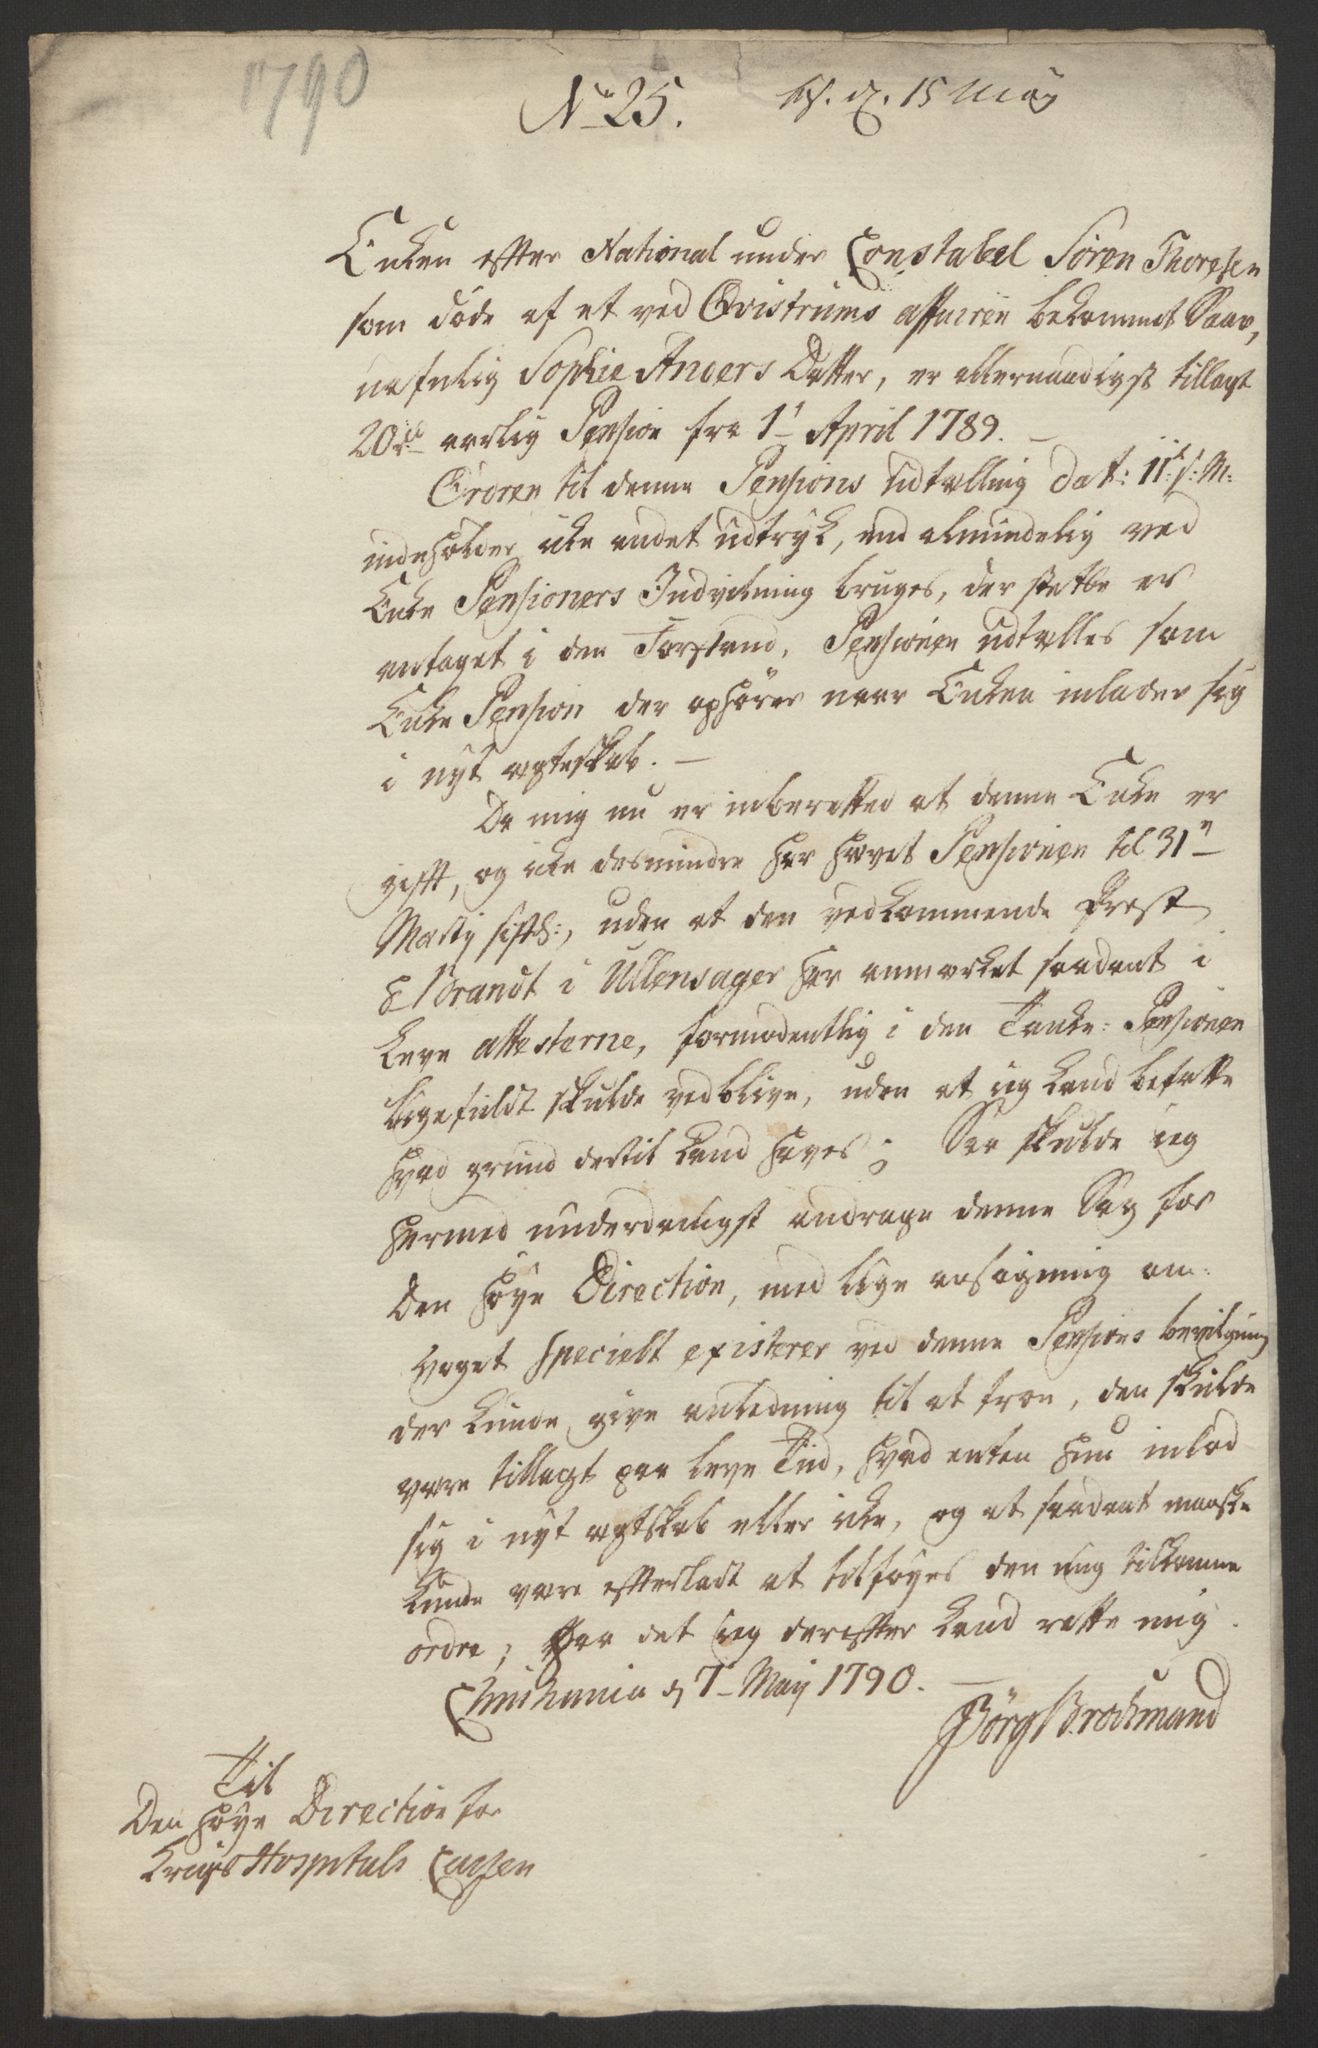 1790
No 25.
d. 15 May
Enken efter National under Constabel Sören Thoresen
som döde af et ved Qvistrums affairen bekommet Saar,
nafnlig Sophie Anders Datter, er allernaadigst tillagt
20 rd aarlig Pension fra 1t April 1789. —
Ordren til denne Pensions Udtælling dat: 11t s: M:
indeholder icke andet udtryk, end almindelig ved
Enke Pensioners Indvilning bruges, der dette er
antaget i den Forstand, Pensionen udtælles som
Enke Pension der ophörer naar Enken inlader sig
i nyt ægteskab. —
Da mig nu er inberetted at denne Enke er
gifft, og icke desmindre har hævet Pensionen til 31n
Martÿ sisth:, uden at den vedkommende Præst
Hr Brandt i Ullensager har anmærket saadant i
Leve attesterne, formodentlig i den Tanke: Pensionen
ligefuldt skulde vedblive, uden at ieg kand befatte
hvad grund dertil kand haves; Saa skulde ieg
hermed underdanigst andrage denne Sag for
Den höye Direction, med lige ansögning om:
noget specielt existerer ved denne Pensions bevilgning
der kunde give anledning til at troe, den skulde
være tillagt paa leve Tiid, hvad enten hun inlod
sig i nyt ægtskab eller icke, og at saadant maaske
kunde være efterladt at tilföyes den mig tilkomne
ordre; paa det ieg derefter kand rette mig.
Christiania d 7 May 1790. —
Börg Brockmand
Til
Den höye Direction for
Krigs Hospitals Cassen